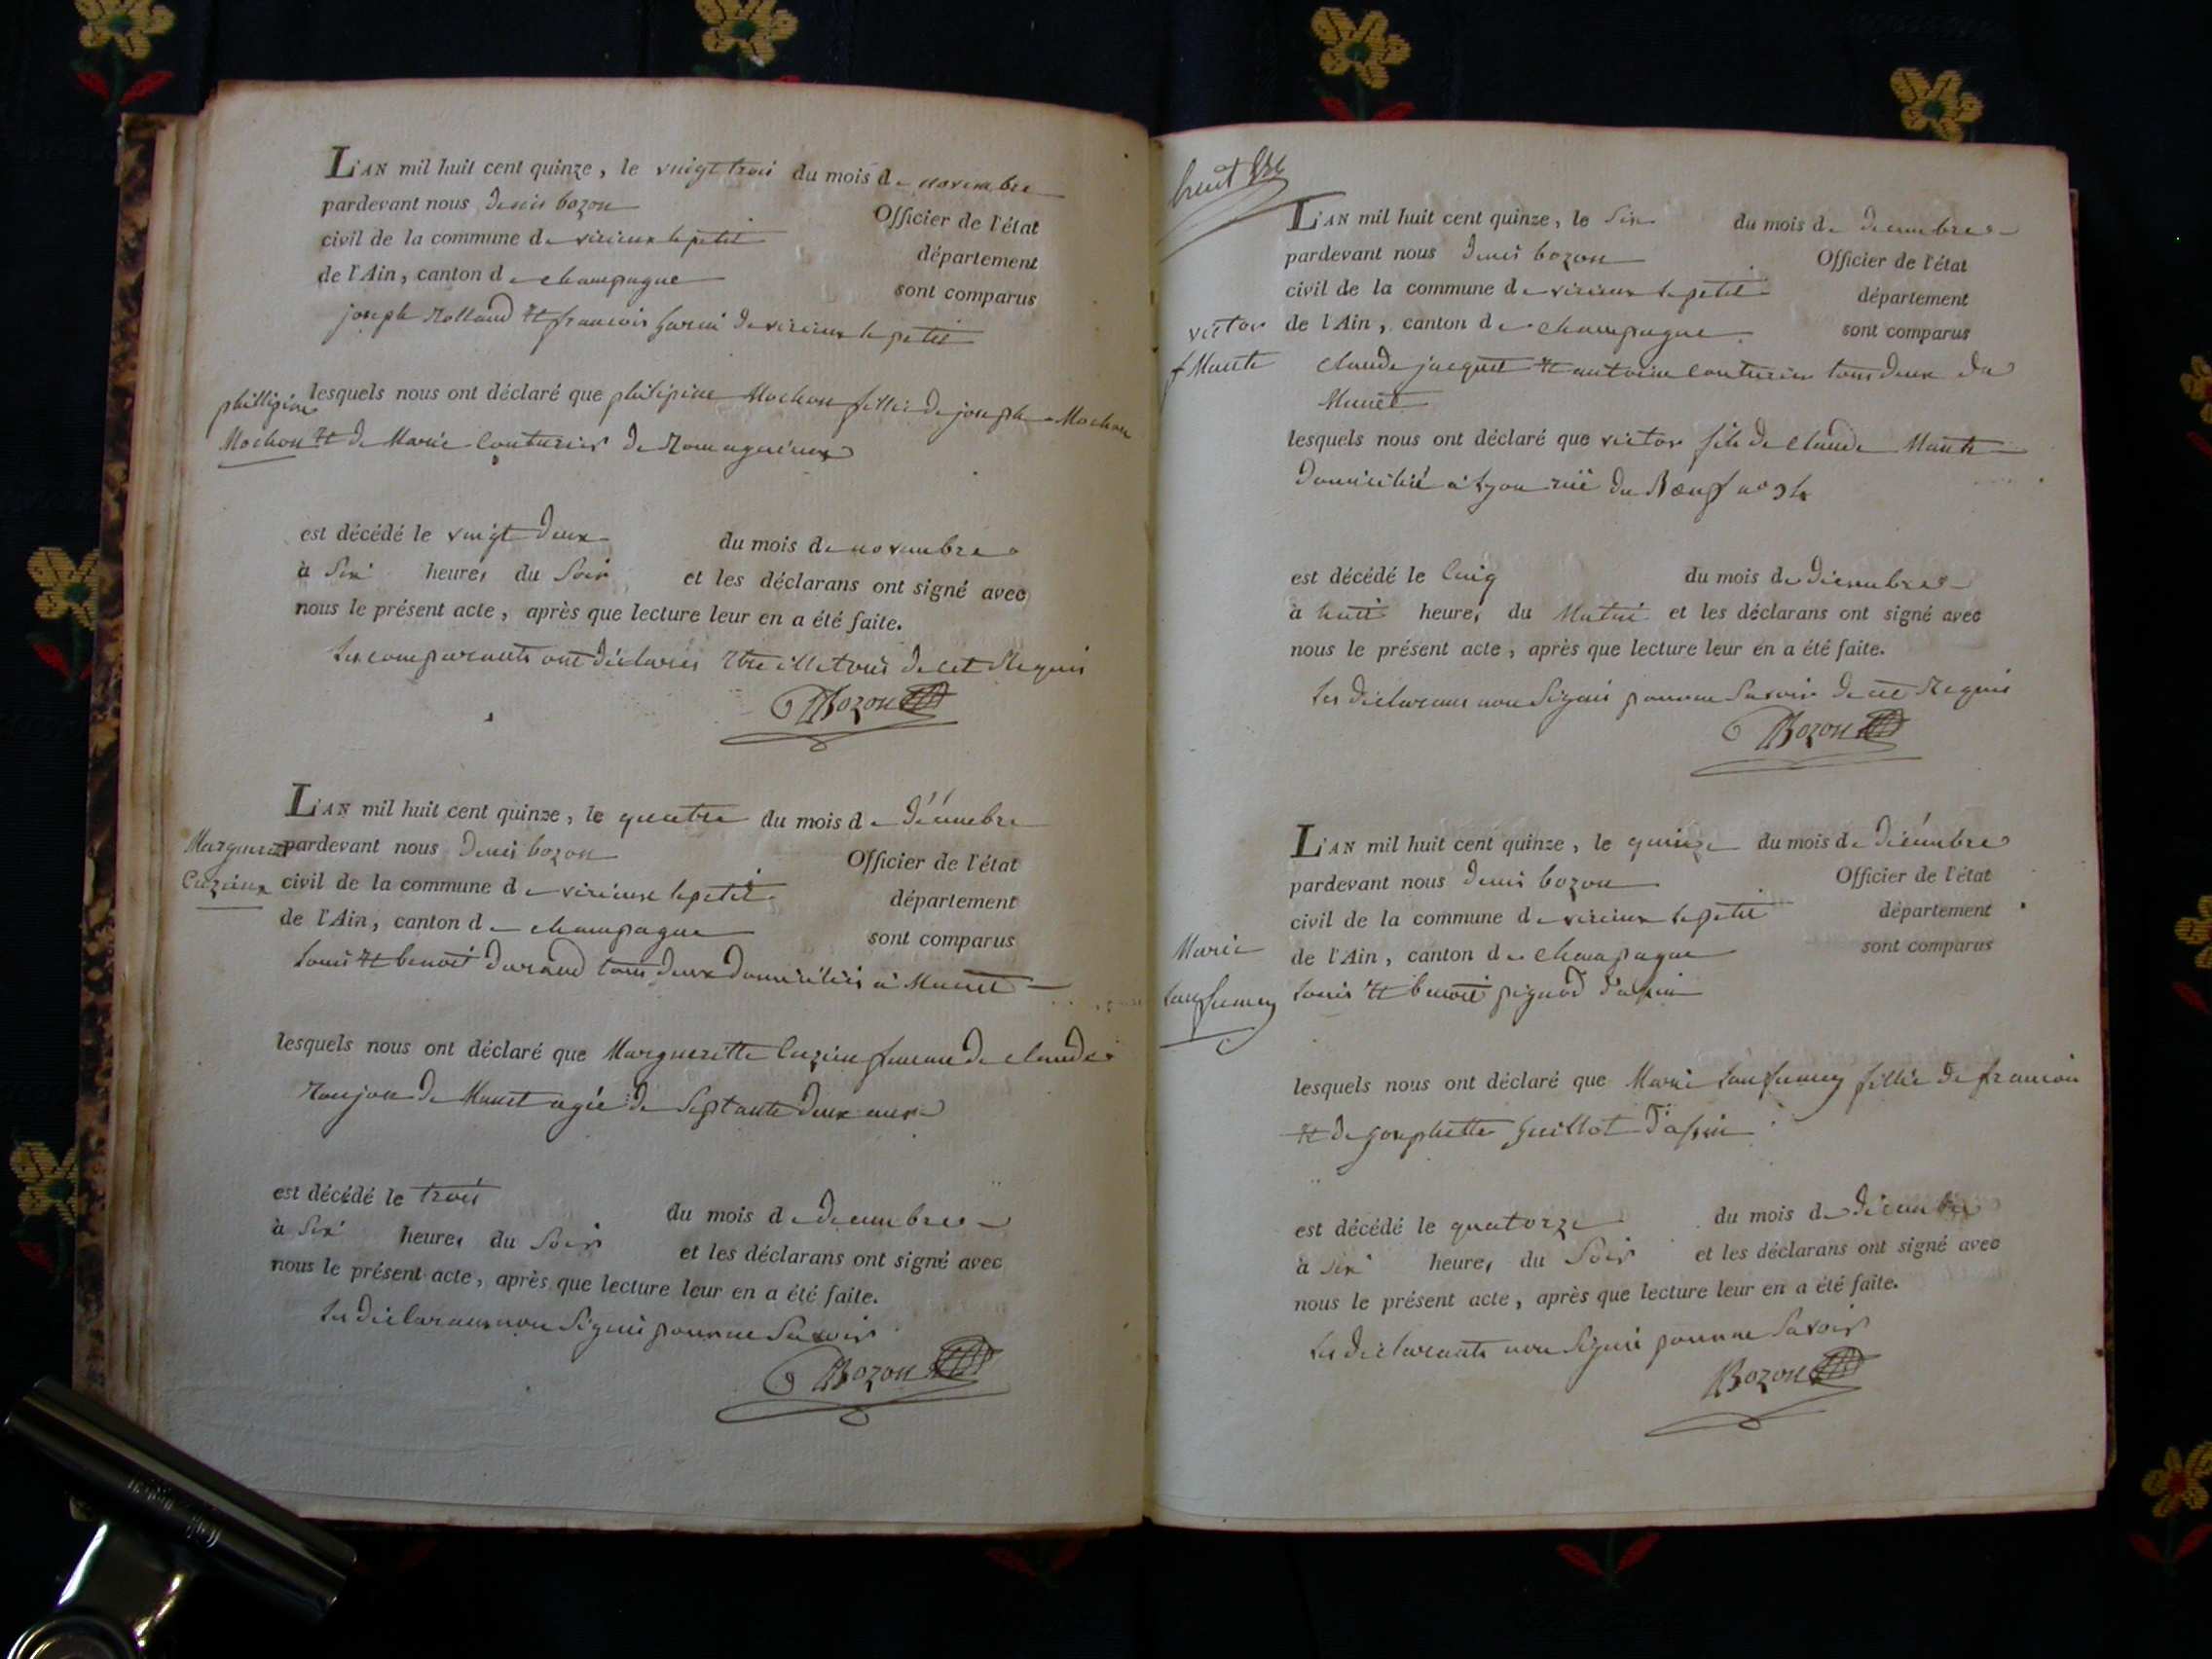 L'AN mil huit cent quinze, le vingt trois du mois de novembre
pardevant nous denis bozon Officier de l'état
civil de la commune de virieux le petit département
de l'Ain, canton de champagne sont comparus
joseph Rolland et francois Garin de virieux le petit
phillipine
Mochon
lesquels nous ont déclaré que philipine Mochon fillie de joseph Mochon
et de Marie Couturier de Romagnieux
est décédé le vingt deux du mois de novembre
à six heures du soir et les déclarans ont signé avec
nous le présent acte, après que lecture leur en a été faite.
les comparants ont déclarés être illetrés de cet Requis
Bozon
L'AN mil huit cent quinze, le quatre du mois de décembre
pardevant nous denis bozon Officier de l'état
civil de la commune de virieux le petit département
de l'Ain, canton de champagne sont comparus
louis et benoit durand tous deux domiciliés à Munet
lesquels nous ont déclaré que Margueritte Cuzin femme de claude
Roujon de Munet agée de septante deux ans
est décédé le trois du mois de decembre
à six heures du soir et les déclarans ont signé avec
nous le présent acte, après que lecture leur en a été faite.
les déclarans non signés pour ne savoir
Bozon
huit
victor
Mante
L'AN mil huit cent quinze, le six du mois de decembre
pardevant nous denis bozon Officier de l'état
civil de la commune de virieux le petit département
de l'Ain, canton de champagne sont comparus
claude jacquet et antoine couturier tous deux de
Munet
lesquels nous ont déclaré que victor fils de claude Mante
domicilié à Lyon rüe du Bœuf n°
est décédé le cinq du mois de décembre
à huit heures du Matin et les déclarans ont signé avec
nous le présent acte, après que lecture leur en a été faite.
les déclarans non signés pour ne savoir de ce Requis
Bozon
Marie
L'AN mil huit cent quinze, le quinze du mois de décembre
pardevant nous denis bozon Officier de l'état
civil de la commune de virieux le petit département
de l'Ain, canton de champagne sont comparus
louis et benoit pignod d'assin
lesquels nous ont déclaré que Marie fillie de francois
et de Guillot d'assin
est décédé le quatorze du mois de décembre
à six heures du soir et les déclarans ont signé avec
nous le présent acte, après que lecture leur en a été faite.
les déclarants non signés pour ne savoir
Bozon